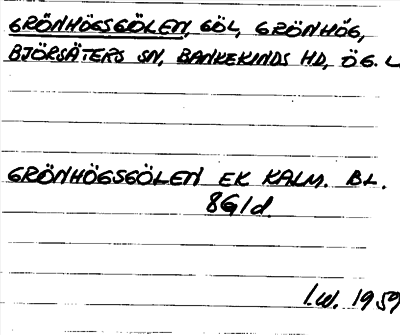 GRÖNHÖGSGÖLEN, GÖL, GRÖNHÖG,
BJÖRSÄTERS SN, BANKEKINDS HD, ÖG. L
GRÖNHÖGSGÖLEN EK KALM. BL.
8G1d
I.W. 1959